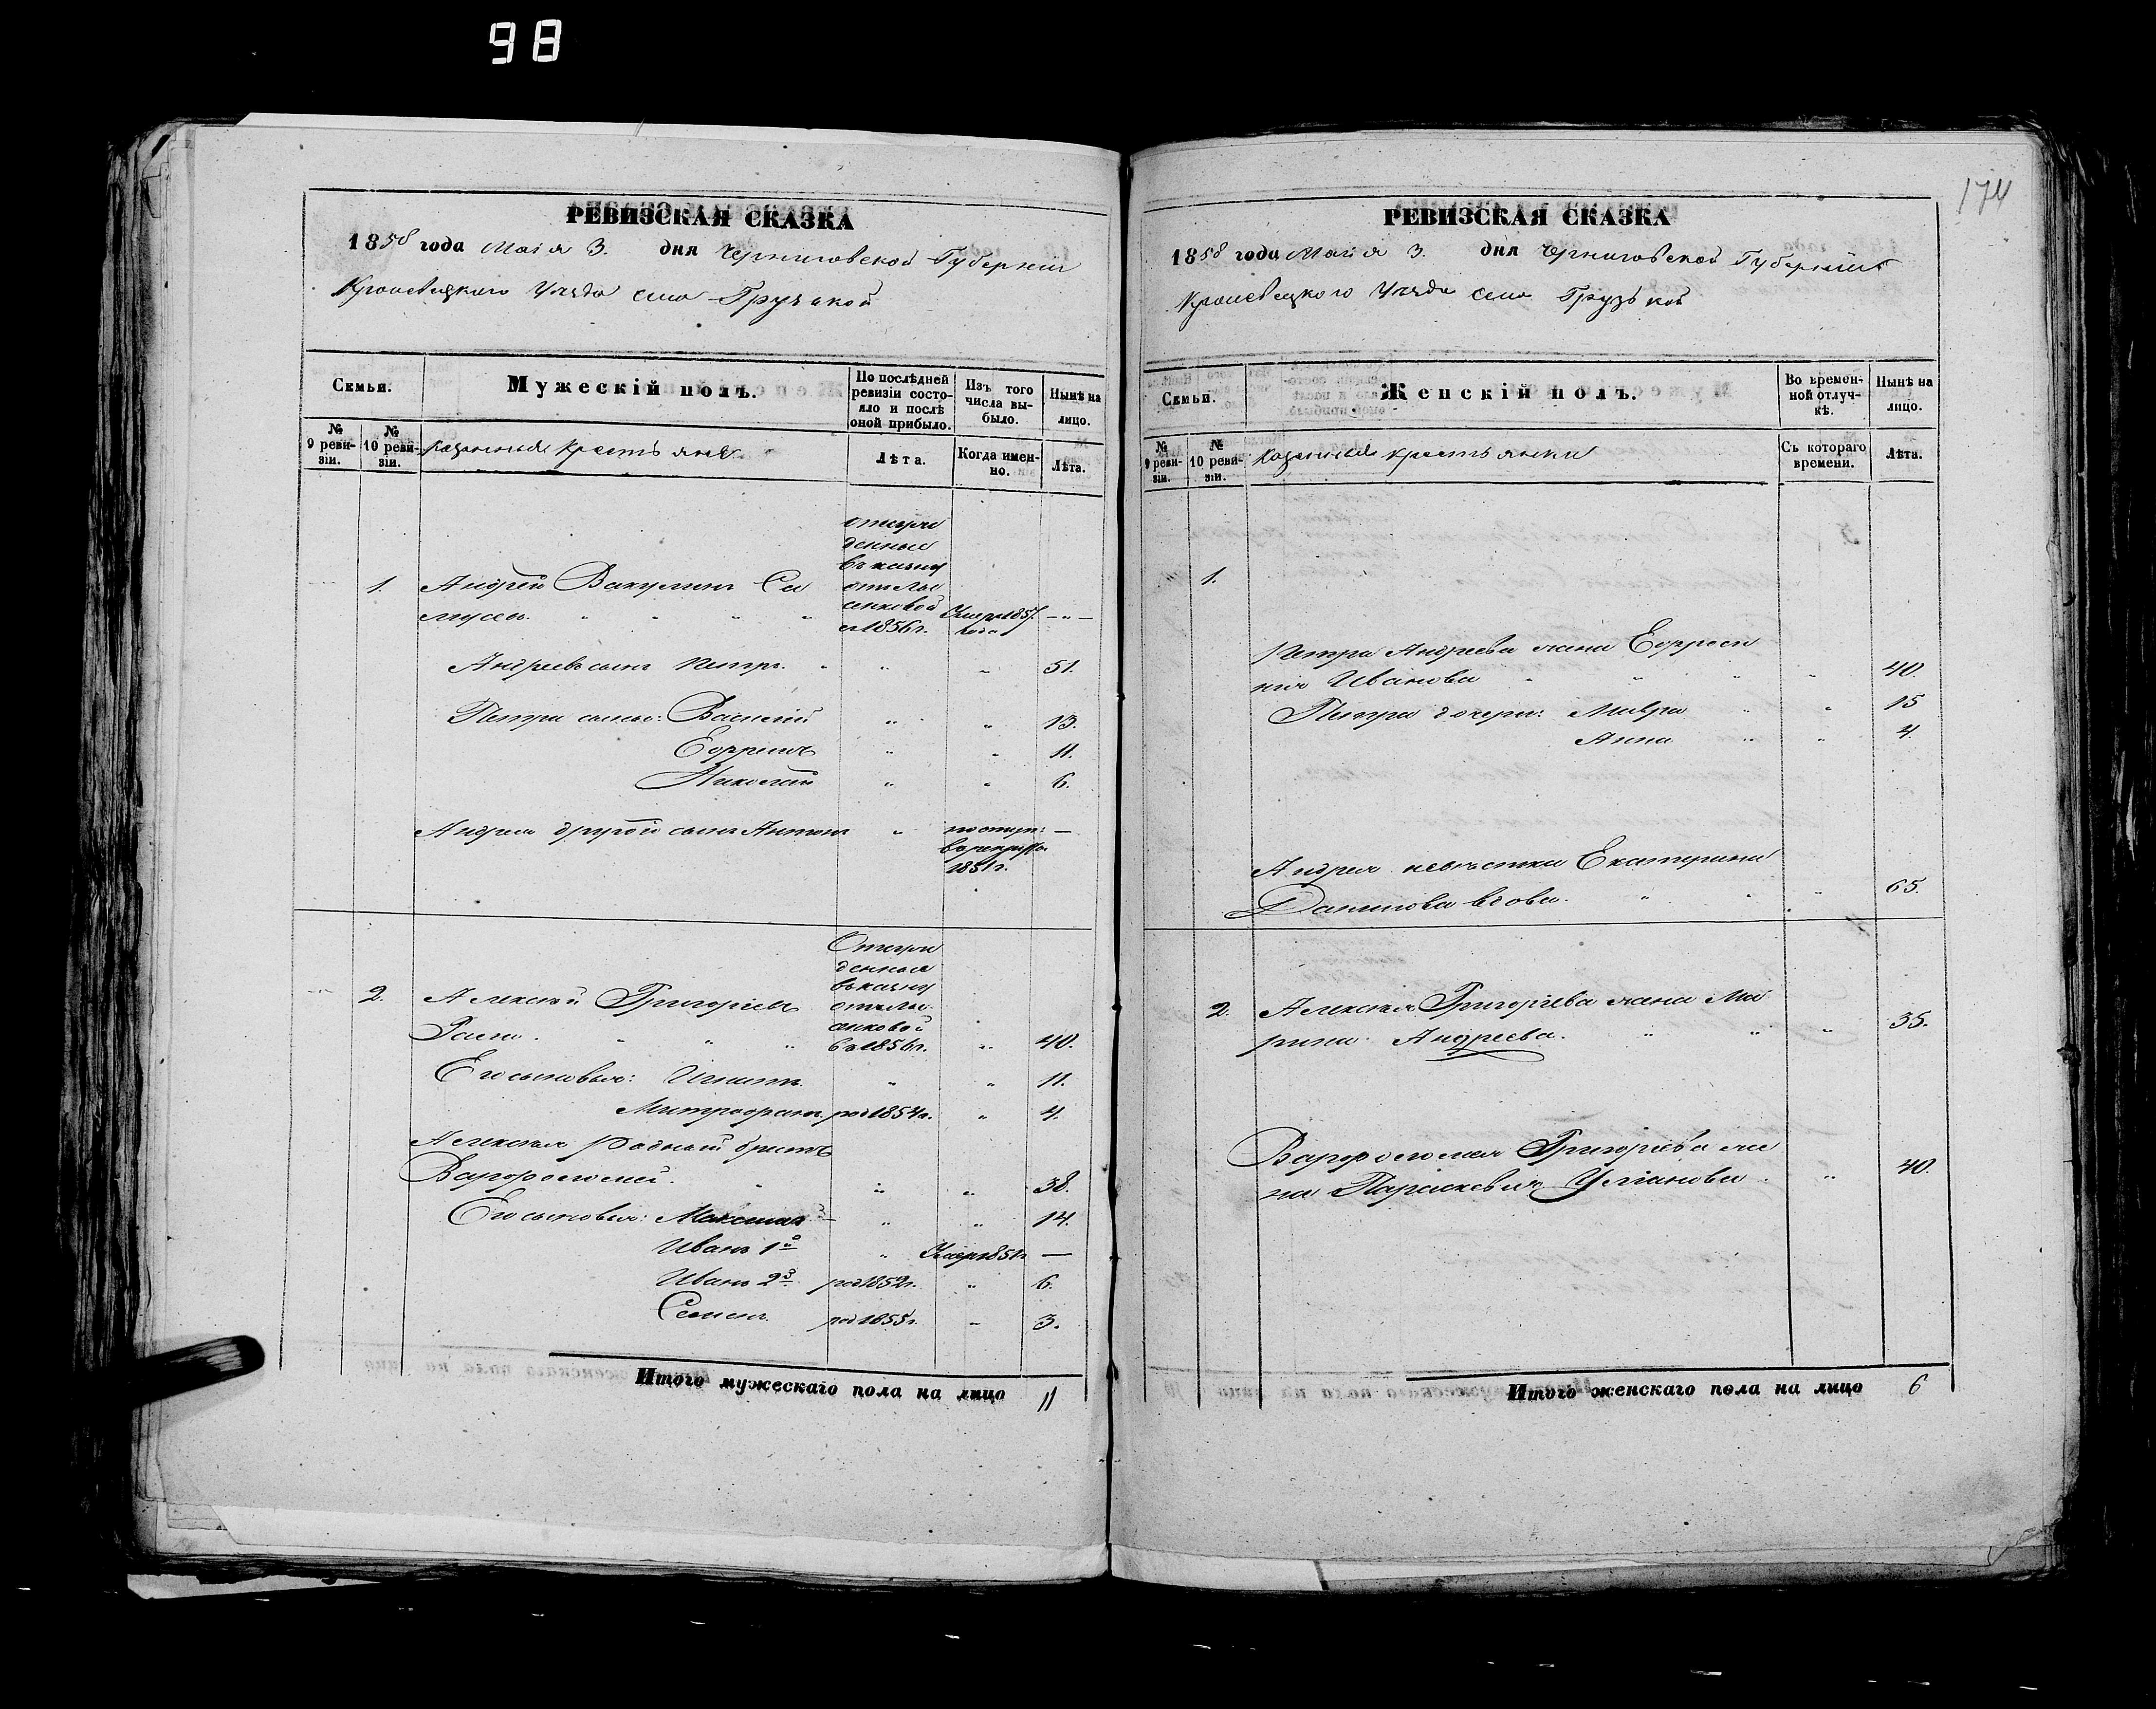 98
174
РЕВИЗСКАЯ СКАЗКА
1858 года Маія 3. дня Черниговской Губерніи
Кролевецкого Уезда село Грузской
Семьи.
Мужескій полъ.
По послѣдней ревизіи состояло и послѣ оной прибыло.
Изъ того числа выбыло.
Нынѣ на лицо.
№ 9 ревизіи.
№ 10 ревизіи.
казенные крестьяне
Лѣта.
Когда именно.
Лѣта.
отсуж
денные
въ казну
1. Андрей Вакулинъ
1856г. Умеръ 1857 года — " —
Андреевъ сынъ Петръ. " " 51.
Петра сыны: Василій " " 13.
Ефремъ " " 11.
Николай " " 6.
Андрея другой сынъ Антонъ " поступ: —
в рекруты
1851г.
Отсуж
денные
въ казну
2. Алексѣй Григорьевъ
въ 1856г. " 40.
Его сыновья: Игнатъ " " 11.
Митрофанъ род 1854г. " 4.
Алексѣя родный братъ
Варфоломей. " " 38.
Его сыновья: Максимъ — " " 14.
Иванъ 1й " Умеръ 1851г —
Иванъ 2й род 1852г. " 6.
Семенъ. род 1855г. - 3.
Итого мужескаго пола на лицо 11
РЕВИЗСКАЯ СКАЗКА
1858 года Маія 3. дня Черниговской Губерніи
Кролевецкого Уезда село Грузской
Семьи.
Женскій полъ.
Во временной отлучкѣ.
Нынѣ на лицо.
№ 9 ревизіи.
№ 10 ревизіи.
Казенные крестьянки
Съ котораго времени.
Лѣта.
1.
Петра Андреева жена Ефроси
нія Иванова " " " " 40.
Петра дочери: Мавра " " 15
Анна " " 4.
Андрея невѣстка Екатерина
Данилова вдова. " " " 65.
2. Алексѣя Григорьева жена Ма
рина Андреева. " " " 35.
Варфоломея Григорьева же
на Параскевія Ульянова. " 40.
Итого женскаго пола на лицо 6